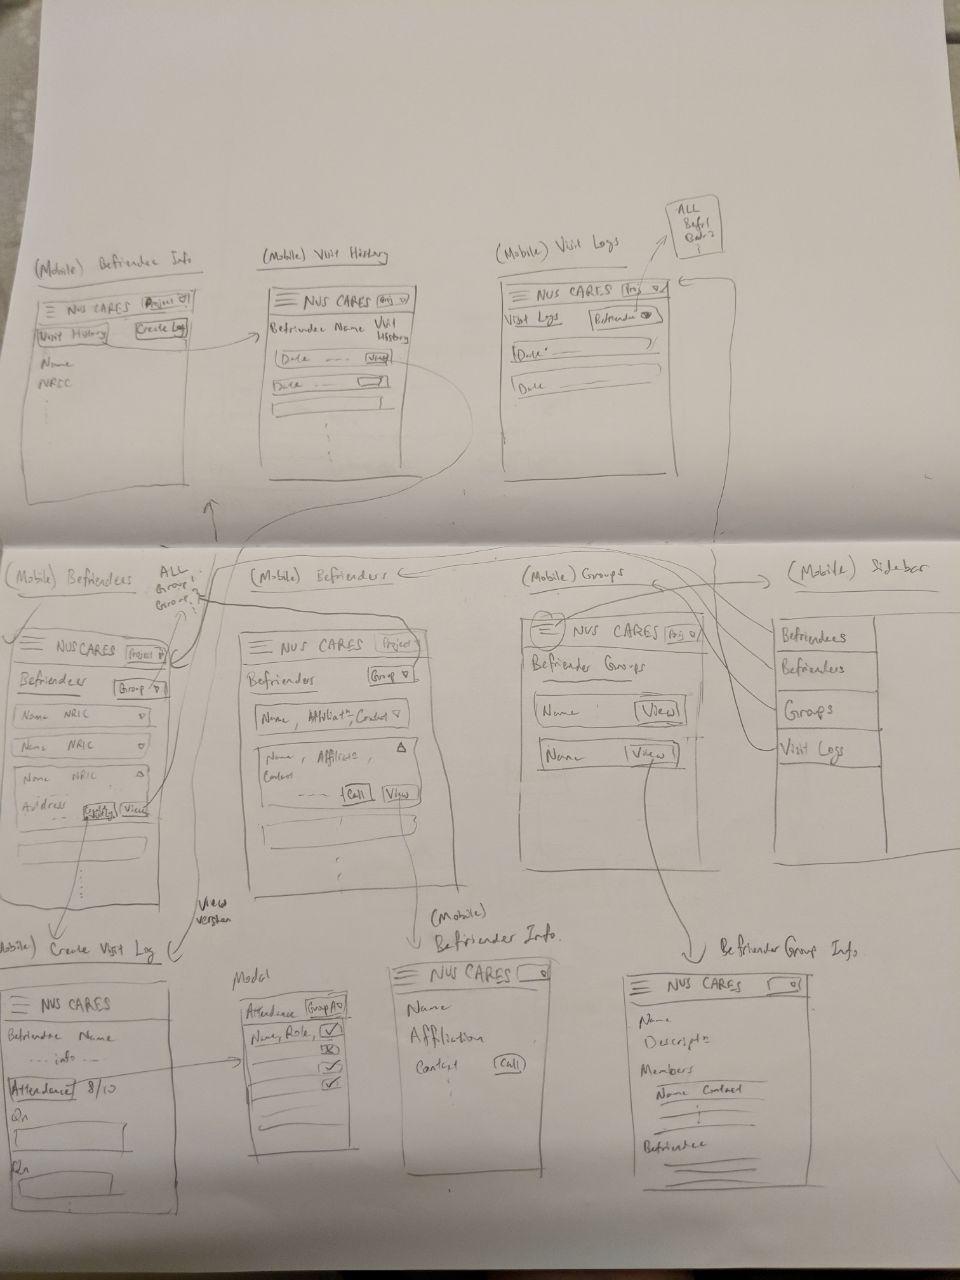 ALL
Befr1
Befr2
(Mobile) Befriendee Info
NUS CARES Project
Visit History Create Log
Name
NRIC
(Mobile) Visit History
NUS CARES Proj
Befriendee Name Visit History
Date View
Date
(Mobile) Visit Logs
NUS CARES Proj
Visit Logs Befriendee
Date
Date
(Mobile) Befriendees
ALL
Group 1
Group 2
NUS CARES Project
Befriendees Group
Name NRIC
Name NRIC
Name NRIC
Address View
(Mobile) Befrienders
NUS CARES Project
Befrienders Group
Name, Affiliatn, Contact
Name, Affiliatn,
Contact
Call View
(Mobile) Groups
NUS CARES Proj
Befriender Groups
Name View
Name View
(Mobile) Sidebar
Befriendees
Befrienders
Groups
Visit Logs
View
version
(Mobile) Create Visit Log
NUS CARES
Befriendee Name
info
Attendance 8/10
Qn
Qn
Modal
Attendance Group A
Name, Role,
(Mobile)
Befriender Info.
NUS CARES
Name
Affiliation
Contact Call
Befriender Group Info.
NUS CARES
Name
Descriptn
Members
Name Contact
Befriendee